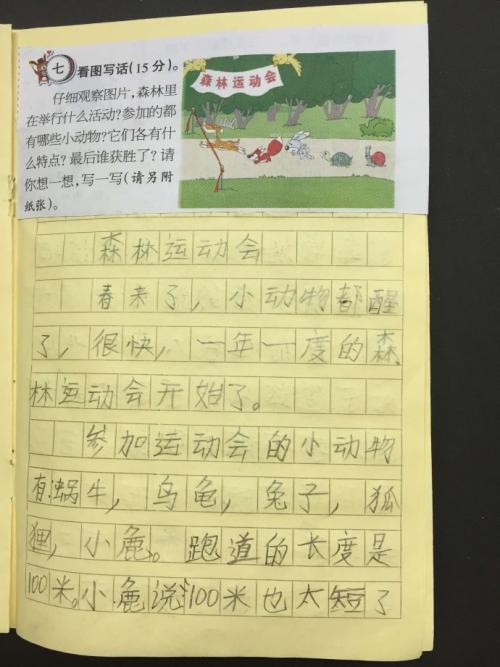 七 看图写话(15分)。
仔细观察图片,森林里
在举行什么活动?参加的都
有哪些小动物?它们各有什
么特点?最后谁获胜了?请
你想一想,写一写(请另附
纸张)。
森林运动会
森林运动会
春来了，小动物都醒
了，很快，一年一度的森
林运动会开始了。
参加运动会的小动物
有蜗牛，乌龟，兔子，狐
狸，小鹿。跑道的长度是
100米。小鹿说:100米也太短了